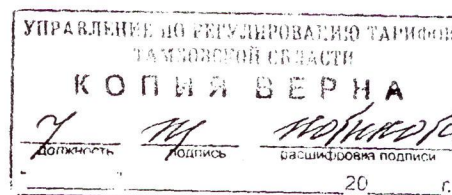 УПРАВЛЕНИЕ ПО РЕГУЛИРОВАНИЮ ТАРИФОВ
ТАМБОВСКОЙ ОБЛАСТИ
КОПИЯ ВЕРНА
должность подпись расшифровка подписи
20 г.